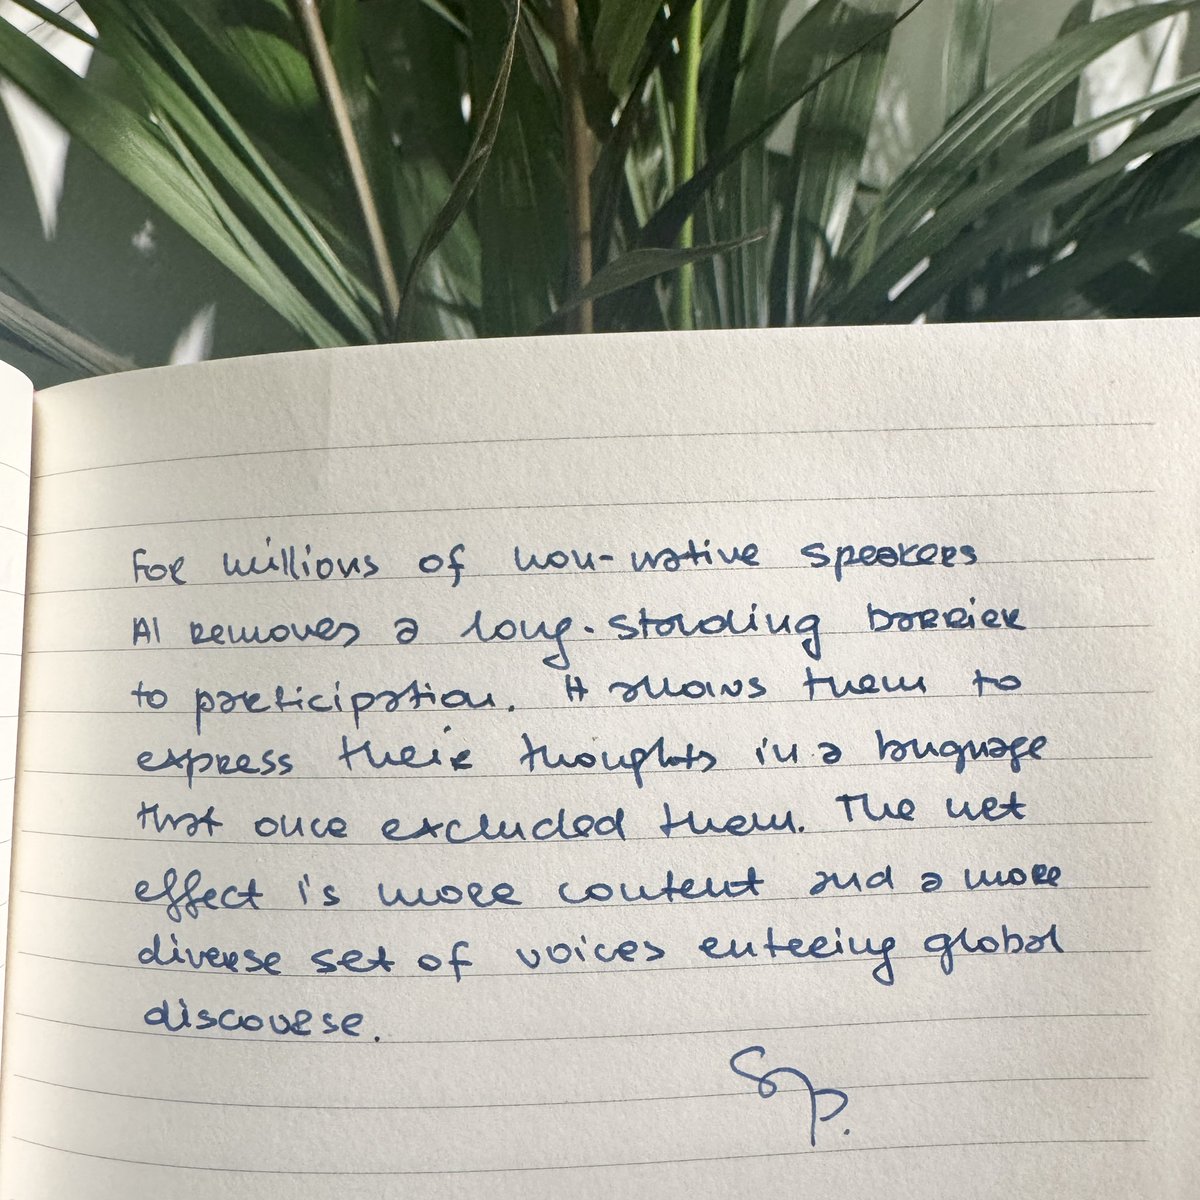 For millions of non-native speakers
AI removes a long-standing barrier
to participation. It allows them to
express their thoughts in a language
that once excluded them. The net
effect is more content and a more
diverse set of voices entering global
discourse.
Sp.